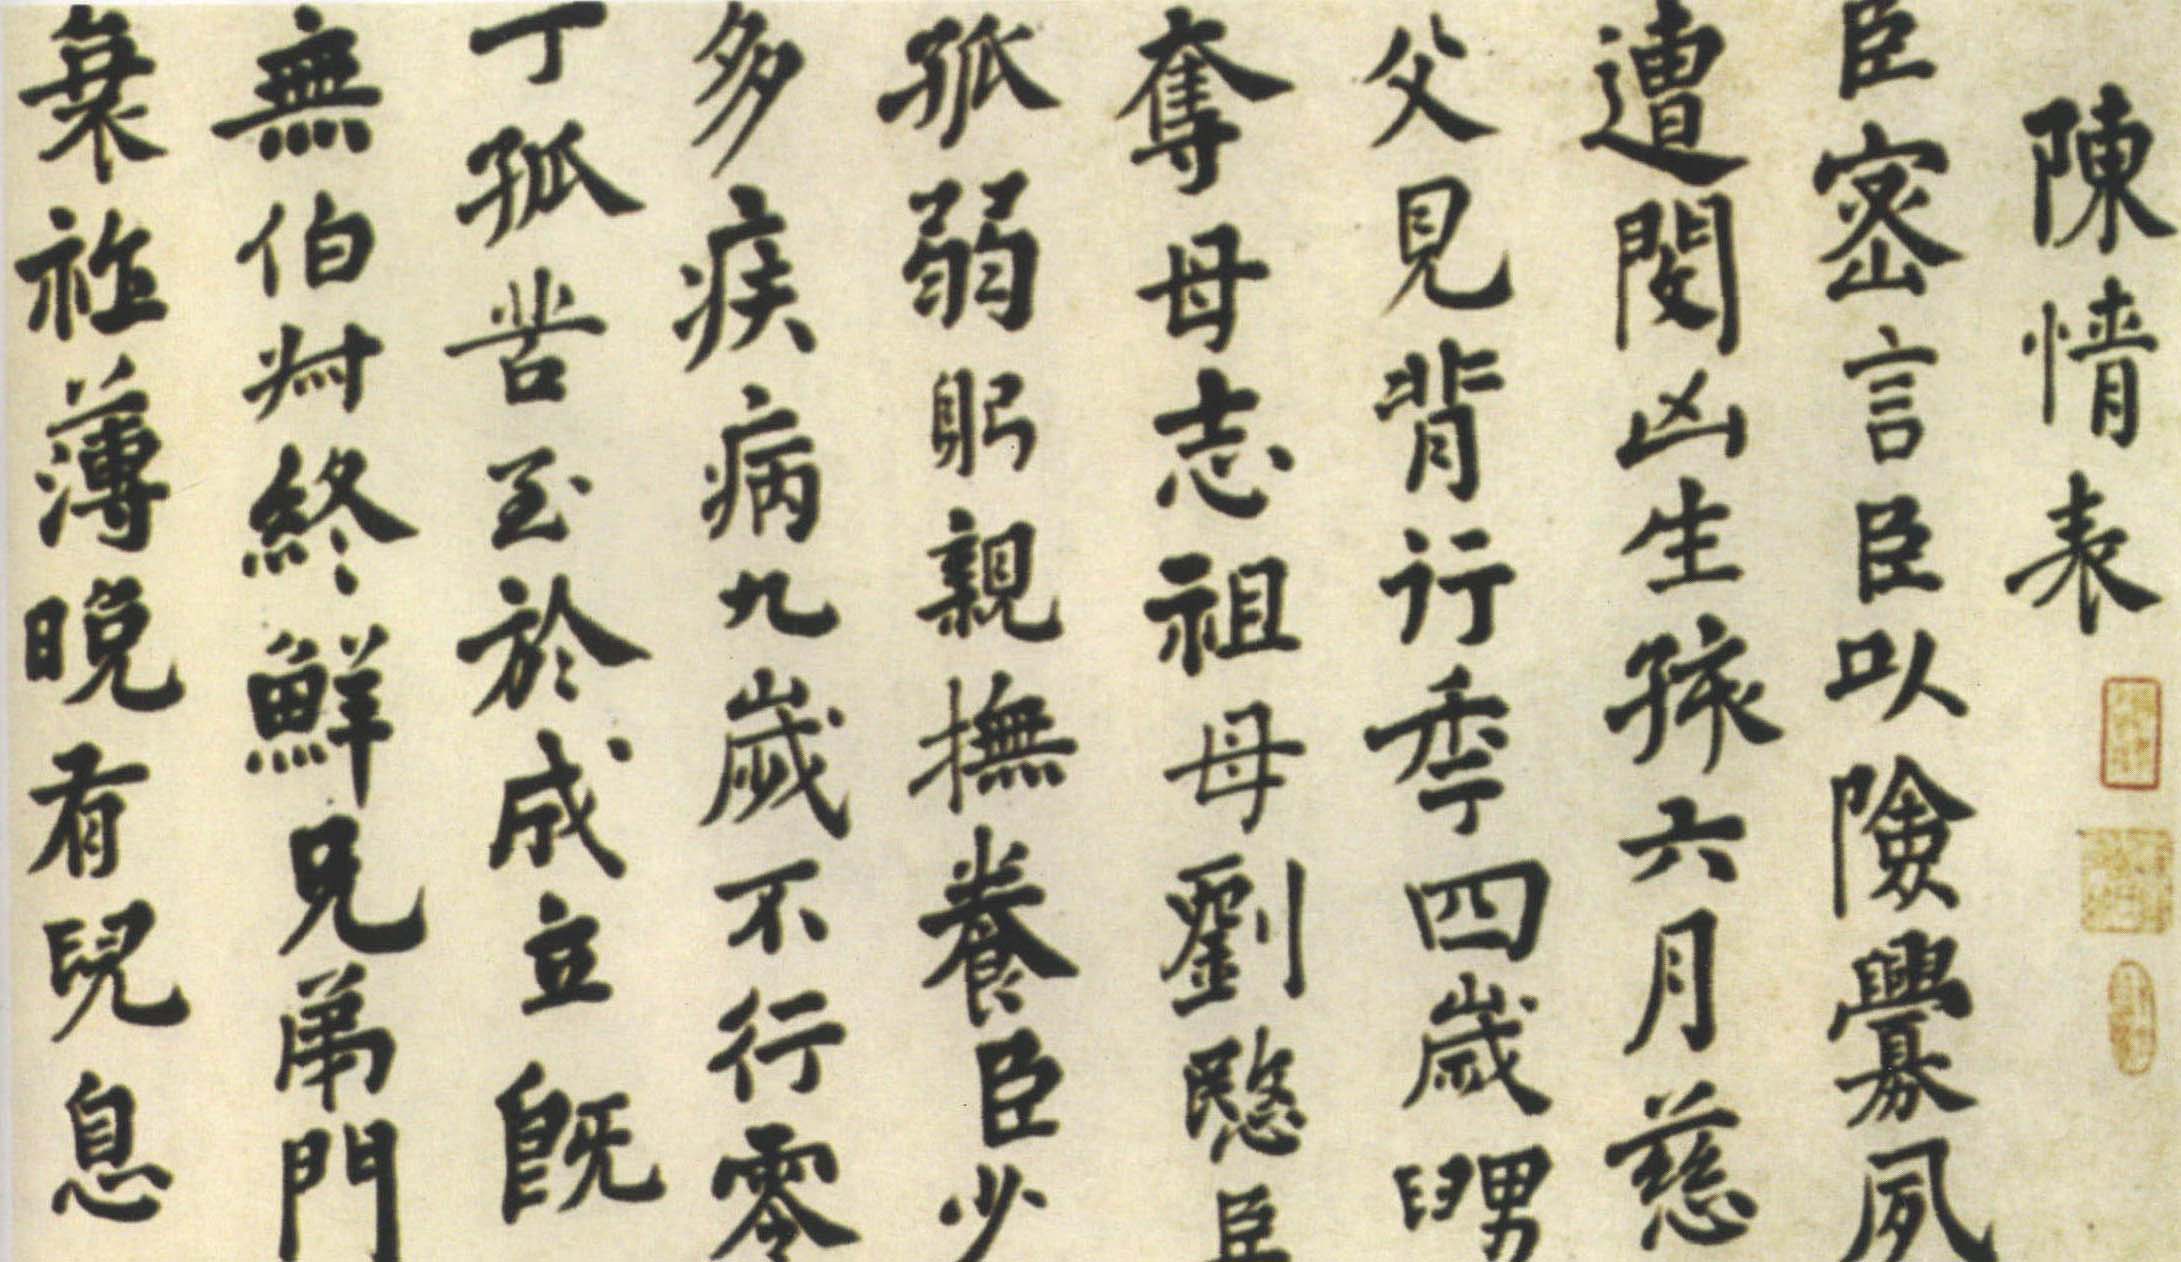 陳情表
臣密言臣以險釁夙
遭閔凶生孩六月慈
父見背行秊四歲舅
奪母志祖母劉愍臣
孤弱躬親撫養臣少
多疾病九歲不行零
丁孤苦至於成立既
無伯叔終鮮兄弟門
衰祚薄晚有兒息